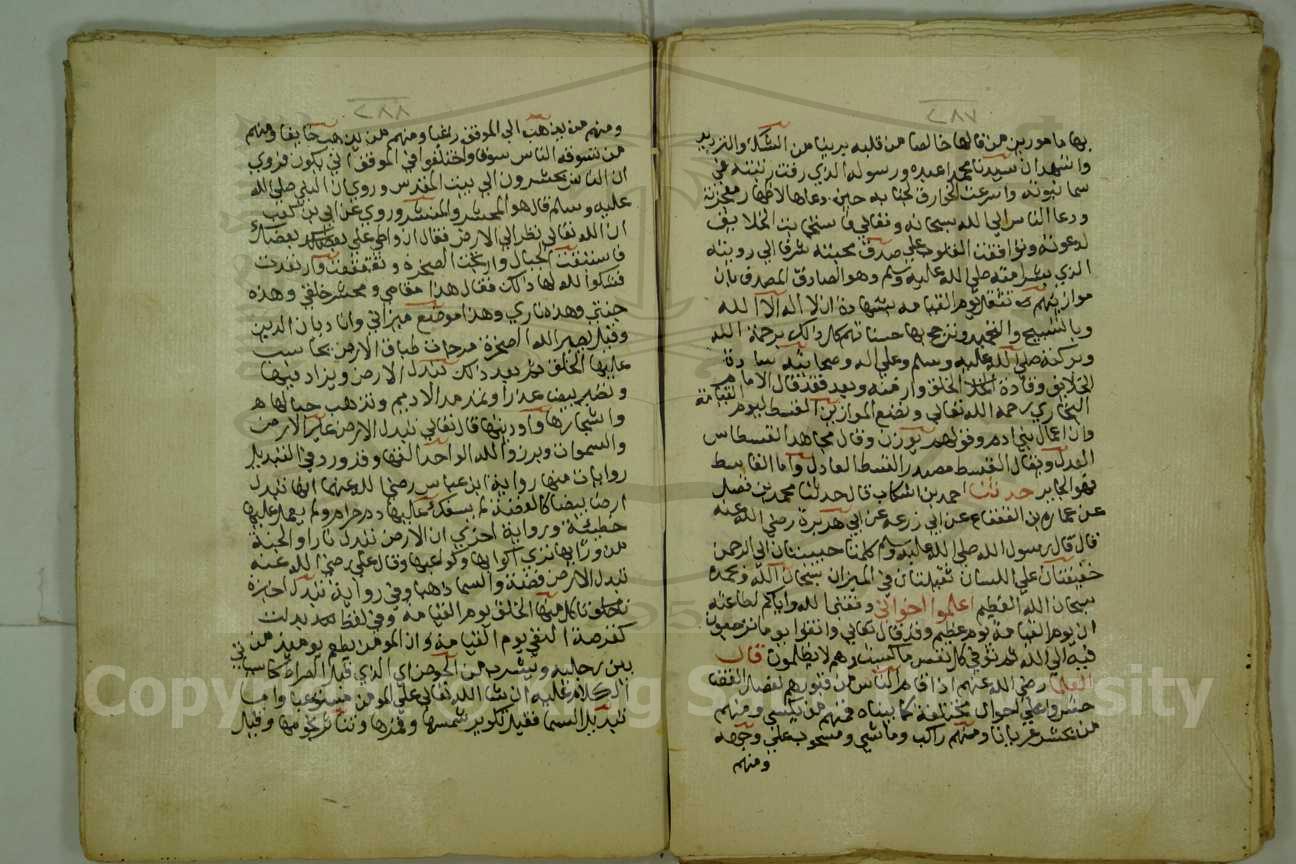 بها مامورين من قالها خالصا من قلبه بريئا من الشك والترديد
واشهد ان سيدنا محمدا عبده ورسوله الذي رفت رتبته في
سما نبوته واسرعت الخوارق لجنابه حين دعاها لاظهار معجزته
ودعا الناس الي الله سبحانه وتعالي فاستجابت الخلايق
لدعوته وتوافقت القلوب علي صدق محبته شرفا الي رويته
الذي بشر امته صلي الله عليه وسلم وهو الصادق المصدق بان
موازينهم تثقل يوم القيامه بشهادة ان لا اله الا الله
وبالتسبيح والتحميد وترجح بها حسناتهم كل ذلك برحمة الله
وبركته صلي الله عليه وسلم وعلي اله وصحابته سادة
الخلايق وقادة الخلق وازمته وبعد فقد قال الامام
البخاري رحمه الله تعالي ونضع الموازين القسط ليوم القيامة
وان اعمال بني ادم وقولهم يوزن وقال مجاهد القسطاس
العدل ويقال القسط مصدر القسط العادل واما القاسط
فهو الجاير حدثنا احمد بن اشكاب قال حدثنا محمد بن فضيل
عن عمارة بن القعقاع عن ابي زرعه عن ابي هريرة رضي الله عنه
قال قال رسول الله صلي الله عليه وسلم كلمتان حبيبتان الي الرحمن
خفيفتان علي اللسان ثقيلتان في الميزان سبحان الله وبحمده
سبحان الله العظيم اعلموا اخواني وفقنا الله واياكم لطاعته
ان يوم القيامة يوم عظيم وقد قال تعالي واتقوا يوما ترجعون
فيه الي الله ثم توفي كل نفس ما كسبت وهم لا يظلمون قال
العلما رضي الله عنهم اذا قام الناس من قبورهم لفصل القضا
حشروا علي احوال مختلفة كما بيناه فمنهم من يكسي ومنهم
من يحشر عريانا ومنهم راكب وماشي ومسحوب علي وجهه
ومنهم
ومنهم من يذهب الي الموقف راغبا ومنهم من يذهب خايفا ومنهم
من تسوقه الناس سوقا واختلفوا في الموقف اني يكون فروي
ان الناس يحشرون الي بيت المقدس وروي ان النبي صلي الله
عليه وسلم قال هو المحشر والمنشر وروي عن ابي بن كعب
ان الله تعالي نظر الي الارض فقال اني واطي علي بعضك
فاستبقت الجبال وارتجت الصخرة وتضعضعت وارتعدت
فشكر الله لها ذلك فقال هذا مقامي ومحشر خلقي وهذه
جنتي وهذه ناري وهذا موضع ميزاني وانا ديان الدين
وقيل يصير الله الصخرة مرجان طباق الارض يحاسب
عليها الخلق ثم بعد ذلك تبدل الارض ويزاد فيها
وتصير بيضا عفرا وتمد مد الاديم وتذهب جبالها
واشجارها واوديتها قال تعالي تبدل الارض غير الارض
والسموات وبرزوا لله الواحد القهار وقد ورد في التبديل
روايات منها رواية ابن عباس رضي الله عنهما انها تبدل
ارضا بيضا كالفضة لم يسفك عليها دم حرام ولم يعمل عليها
خطيئة ورواية اخري ان الارض تبدل نارا والجنة
من ورايها تري اكوابها وكواعبها وقال علي رضي الله عنه
تبدل الارض فضة والسما ذهبا وفي رواية تبدل خبزة
ياكل منها الخلق يوم القيامة وفي لفظ
كقرصة النقي يوم القيامة وان المومن يطعم يوميذ من
بين رجليه ويشرب من الحوض اي الذي قبل الصراط كما سياتي
الكلام عليه ان شا الله تعالي علي المومن واما
تبديل السما فقيل تكوير شمسها وقمرها وتناثر نجومها وقيل
Copyright © King Saud University